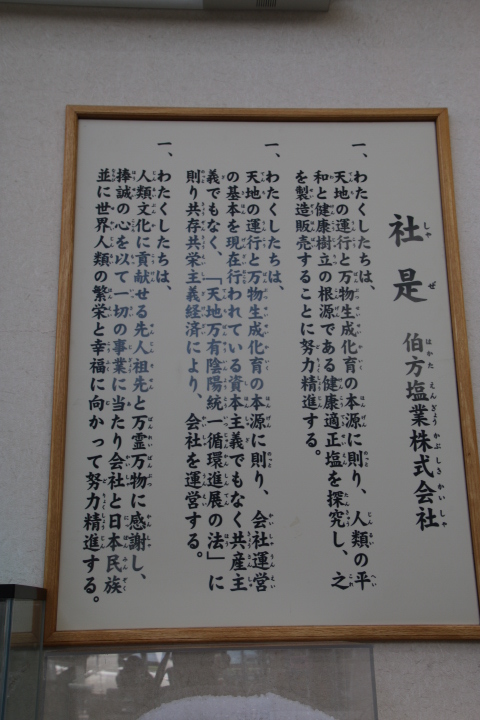 社是
伯方塩業株式会社
一、わたくしたちは、
天地の運行と万物生成化育の本源に則り、人類の平
和と健康樹立の根源である健康適正塩を探究し、之
を製造販売することに努力精進する。
一、わたくしたちは、
天地の運行と万物生成化育の本源に則り、会社運営
の基本を現在行われている資本主義でもなく共産主
義でもなく、「天地万有陰陽統一循環進展の法」に
則り共存共栄主義経済により、会社を運営する。
一、わたくしたちは、
人類文化に貢献せる先人祖先と万霊万物に感謝し、
捧誠の心を以て一切の事業に当たり会社と日本民族
並に世界人類の繁栄と幸福に向かって努力精進する。